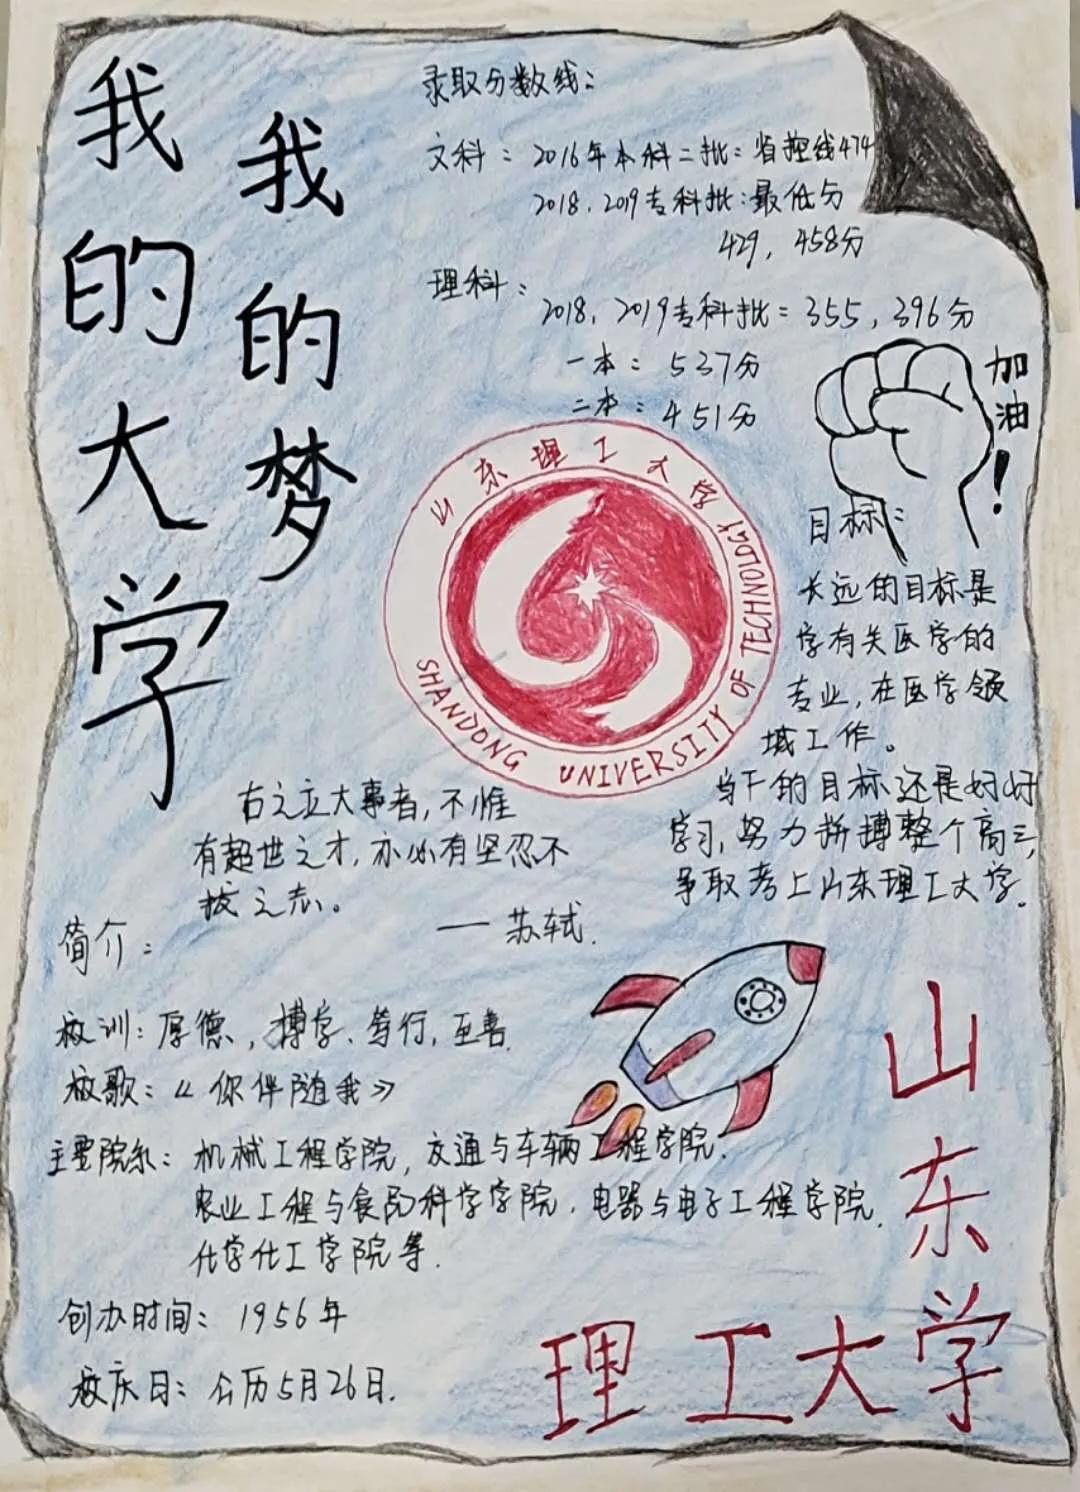 我的大学
我的梦
录取分数线：
文科：2016年本科二批：省控线474
2018、2019专科批：最低分
429，458分
理科：
2018、2019专科批：355，396分
一本：537分
二本：451分
加油！
山东理工大学
SHANDONG UNIVERSITY OF TECHNOLOGY
目标：
长远的目标是
学有关医学的
专业，在医学领
域工作。
当下的目标还是好好
学习，努力拼搏整个高三，
争取考上山东理工大学.
古之立大事者，不惟
有超世之才，亦必有坚忍不
拔之志。
——苏轼.
简介：
校训：厚德，博学、笃行，至善.
校歌：《你伴随我》
主要院系：机械工程学院，交通与车辆工程学院.
农业工程与食品科学学院，电器与电子工程学院.
化学化工学院等.
创办时间：1956年
校庆日：公历5月26日.
山东
理工大学